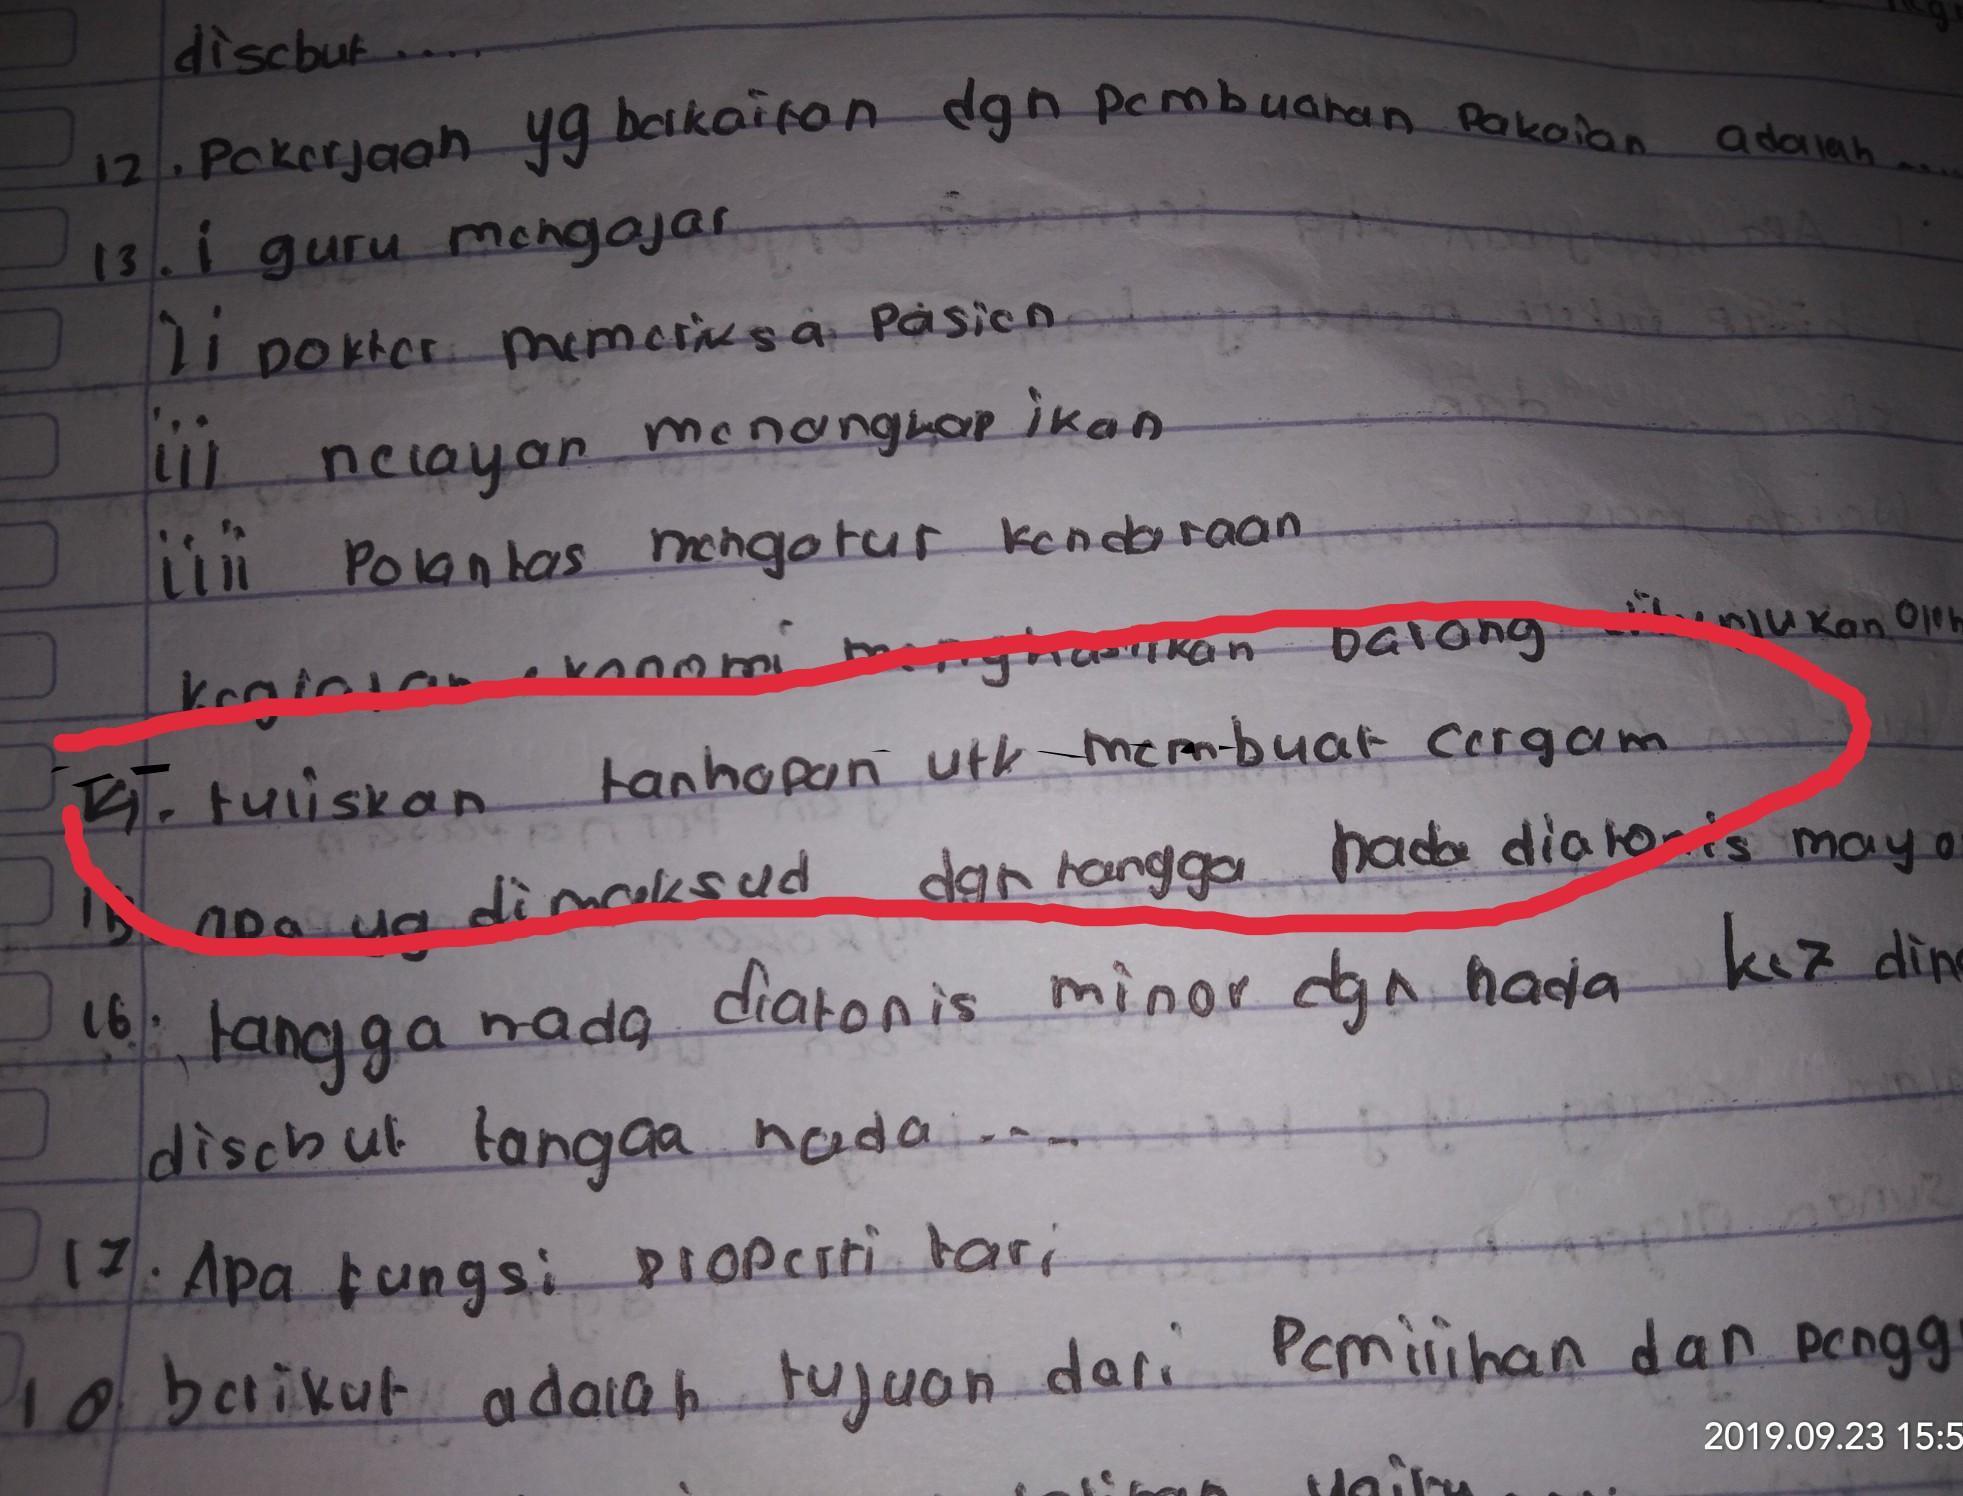 disebut ....
12. Pekerjaan yg berkaitan dgn pembuatan pakaian adalah ....
13. i guru mengajar
ii Dokter memeriksa pasien
iii nelayan menangkap ikan
iiii Polantas mengatur kendaraan
kegiatan ekonomi menghasilkan barang ditunjukan oleh
14. tuliskan tanhapan utk membuat cergam
15 apa yg dimaksud dgn tangga nada diatonis mayo
16. tangga nada diatonis minor dgn nada ke7 din
disebut tangga nada ....
17. Apa fungsi properti tari
18 berikut adalah tujuan dari pemilihan dan pengg
2019.09.23 15:5